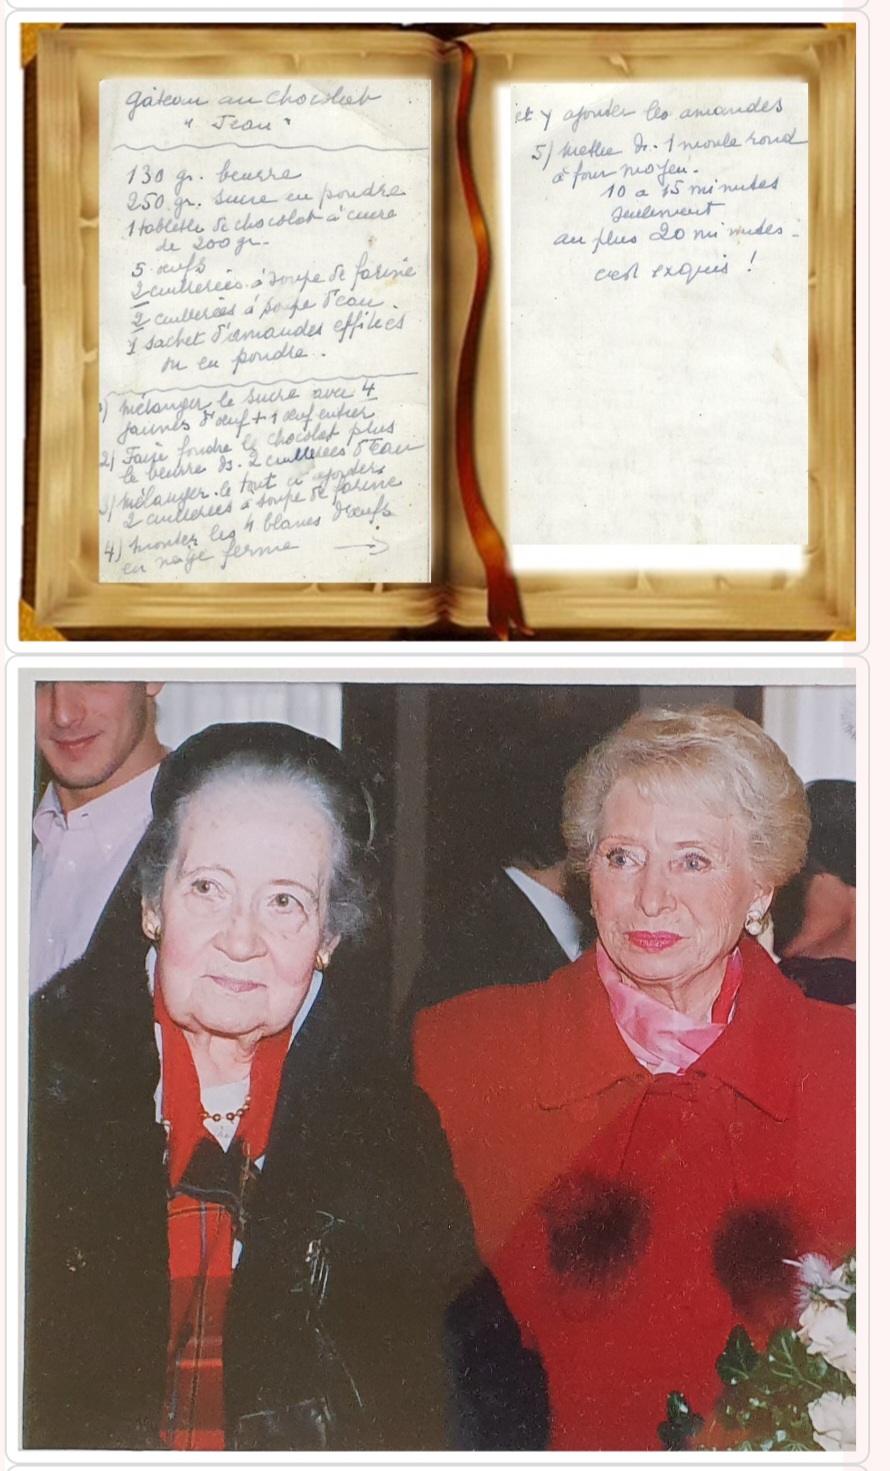 Gâteau au chocolat
"Jean"
130 gr. beurre
250 gr. sucre en poudre
1 tablette de chocolat à cuire
de 200 gr.
5 œufs
2 cuillerées à soupe de farine
2 cuillerées à soupe d'eau.
1 sachet d'amandes effilées
ou en poudre.
1) Mélanger le sucre avec 4
jaunes d'œuf + 1 œuf entier
2) Faire fondre le chocolat plus
le beurre ds. 2 cuillerées d'eau
3) Mélanger le tout et ajouter
2 cuillerées à soupe de farine
4) monter les 4 blancs d'œufs
en neige ferme →
et y ajouter les amandes
5) Mettre ds. 1 moule rond
à four moyen.
10 a 15 minutes
seulement
au plus 20 minutes.
c'est exquis !